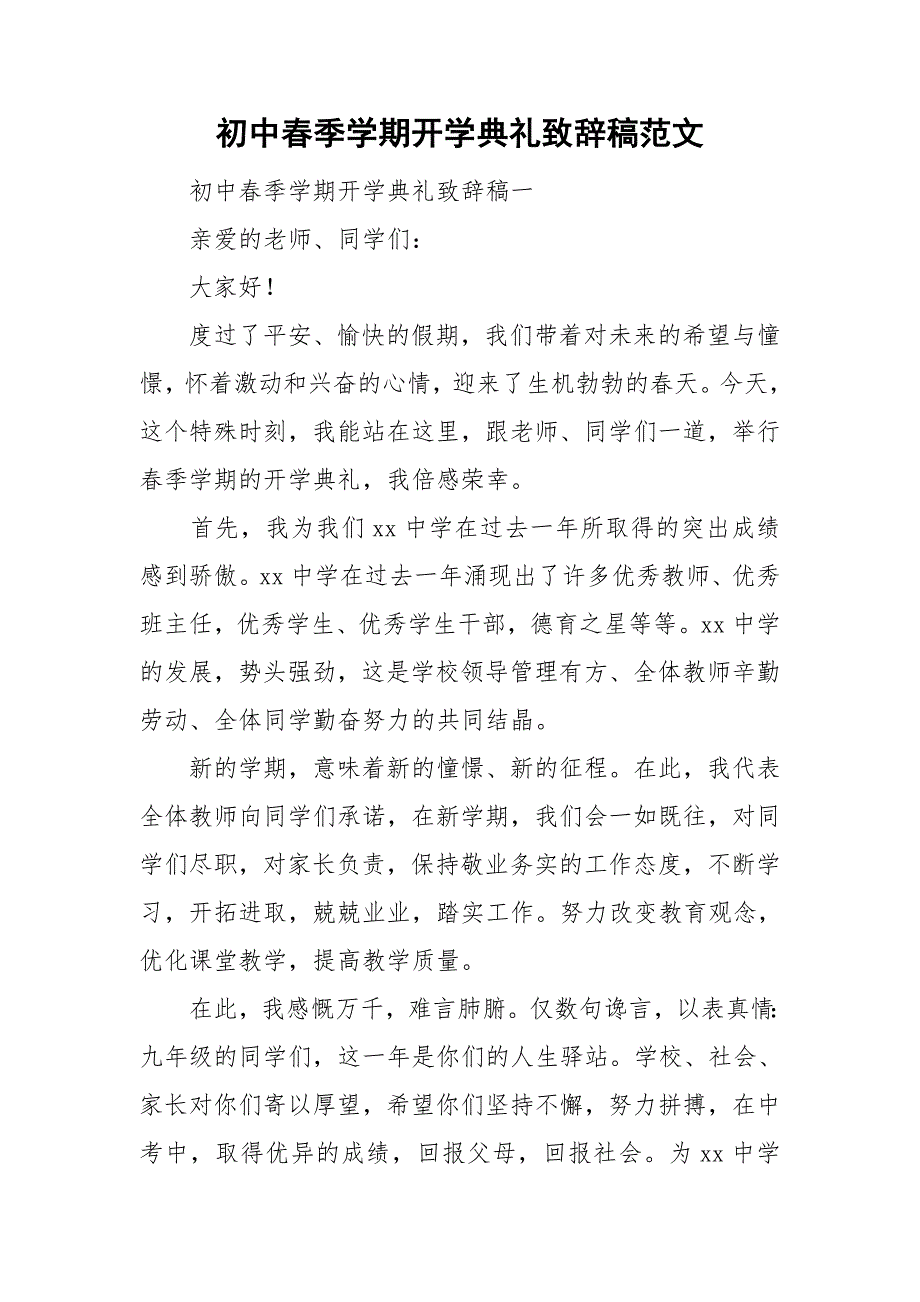 初中春季学期开学典礼致辞稿范文
初中春季学期开学典礼致辞稿一
亲爱的老师、同学们：
大家好！
度过了平安、愉快的假期，我们带着对未来的希望与憧
憬，怀着激动和兴奋的心情，迎来了生机勃勃的春天。今天，
这个特殊时刻，我能站在这里，跟老师、同学们一道，举行
春季学期的开学典礼，我倍感荣幸。
首先，我为我们 xx 中学在过去一年所取得的突出成绩
感到骄傲。xx 中学在过去一年涌现出了许多优秀教师、优秀
班主任，优秀学生、优秀学生干部，德育之星等等。xx 中学
的发展，势头强劲，这是学校领导管理有方、全体教师辛勤
劳动、全体同学勤奋努力的共同结晶。
新的学期，意味着新的憧憬、新的征程。在此，我代表
全体教师向同学们承诺，在新学期，我们会一如既往，对同
学们尽职，对家长负责，保持敬业务实的工作态度，不断学
习，开拓进取，兢兢业业，踏实工作。努力改变教育观念，
优化课堂教学，提高教学质量。
在此，我感慨万千，难言肺腑。仅数句谗言，以表真情：
九年级的同学们，这一年是你们的人生驿站。学校、社会、
家长对你们寄以厚望，希望你们坚持不懈，努力拼搏，在中
考中，取得优异的成绩，回报父母，回报社会。为 xx 中学